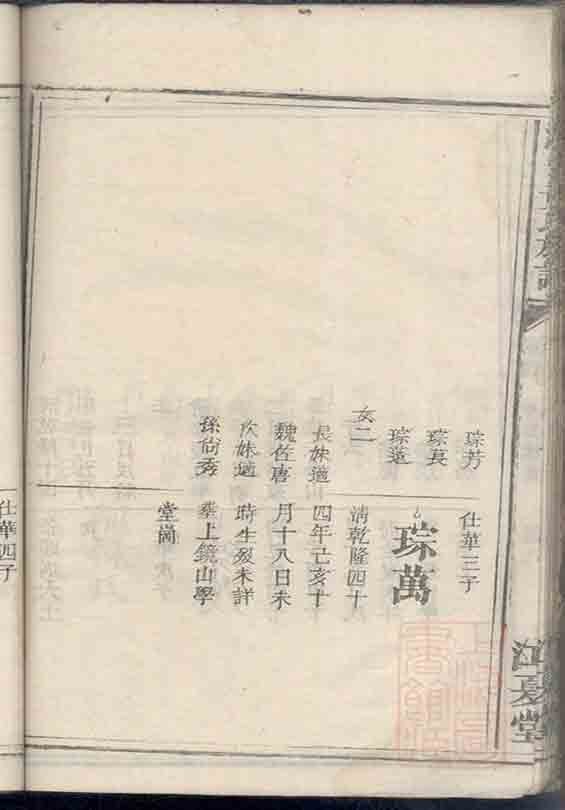 氏族譜
江夏堂
琮芳
琮萇
琮蓮
女二
長妹適
魏佐唐
次妹適
孫尙秀
仕華三子
琮萬
清乾隆四十
四年己亥十
月十八日未
時生殁未詳
塟上鏡山學
堂崗
仕華四子